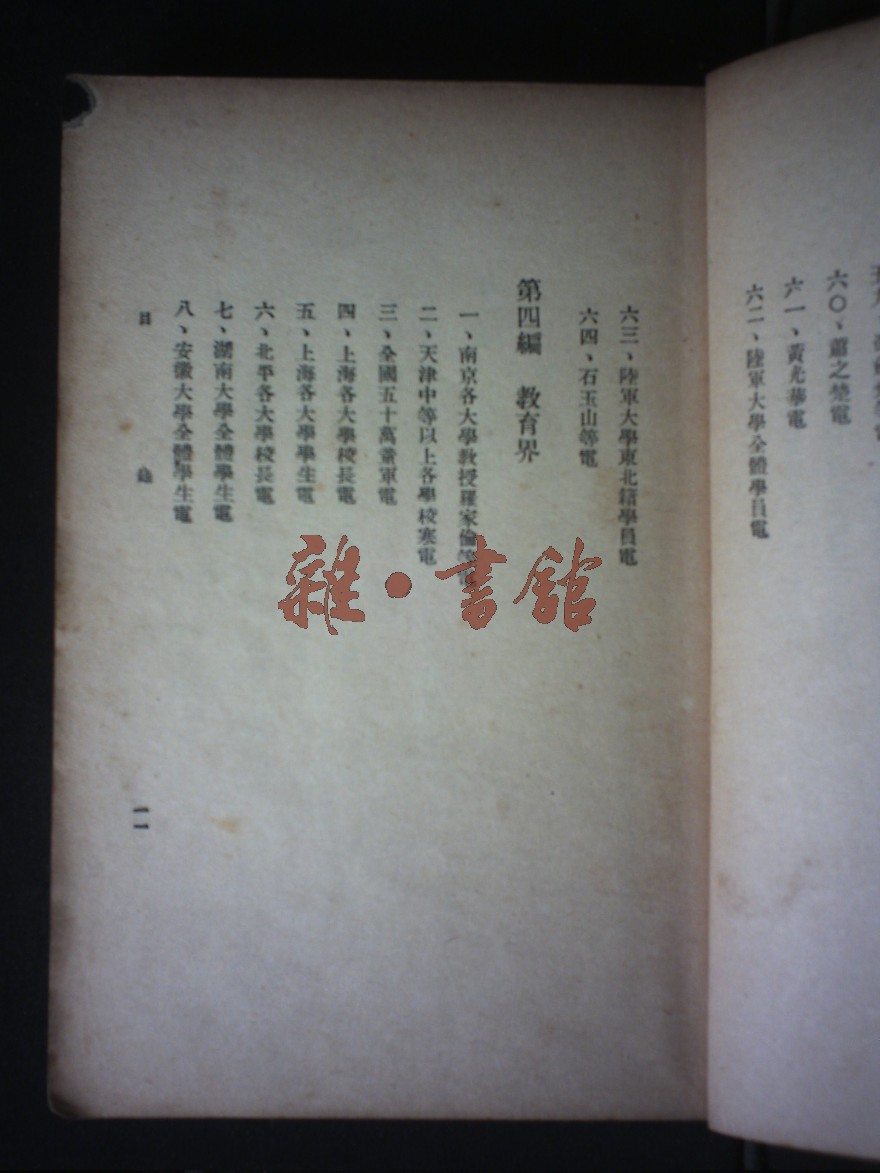 六〇、蕭之楚電
六一、黃光華電
六二、陸軍大學全體學員電
六三、陸軍大學東北籍學員電
六四、石玉山等電
第四編　教育界
一、南京各大學教授羅家倫等電
二、天津中等以上各學校寒電
三、全國五十萬童軍電
四、上海各大學校長電
五、上海各大學學生電
六、北平各大學校長電
七、湖南大學全體學生電
八、安徽大學全體學生電
目錄
一一
雜·書館